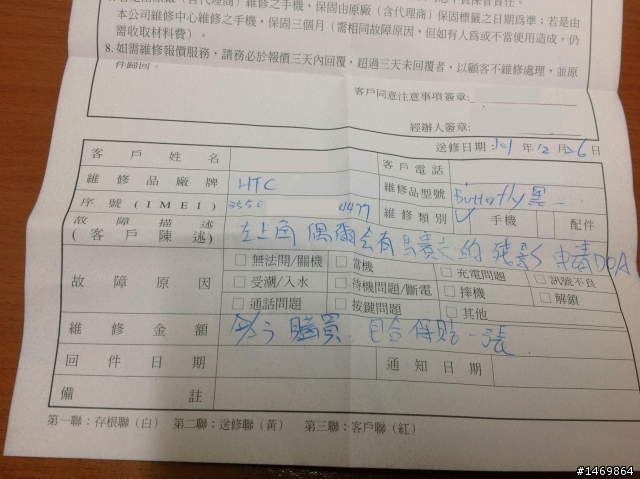 本公司維修中心維修之手機，保固三個月（需相同故障原因，但如有人為或不當使用造成，仍
需收取材料費）。
8. 如需維修報價服務，請務必於報價三天內回覆，超過三天未回覆者，以顧客不維修處理，並原
件歸回。
客戶同意注意事項簽章：
經辦人簽章：
送修日期：101 年 12 月 26 日
客戶姓名 客戶電話
維修品廠牌 HTC 維修品型號 Butterfly 黑
序號（IMEI） 3550 4477 維修類別 ✓ 手機 配件
故障描述
（客戶陳述） 左上角 偶爾會有 的 殘影 申請DOA
故障原因 □ 無法開/關機 □ 當機 □ 充電問題 □ 訊號不良
□ 受潮/入水 □ 待機問題/斷電 □ 摔機 □ 解鎖
□ 通話問題 □ 按鍵問題 □ 其他
維修金額 購買 包含保貼一張
回件日期 通知日期
備註
第一聯：存根聯（白） 第二聯：送修聯（黃） 第三聯：客戶聯（紅）
#1469864